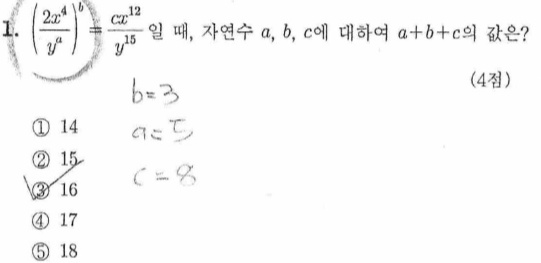 1. (2x⁴/yᵃ)ᵇ = cx¹²/y¹⁵ 일 때, 자연수 a, b, c에 대하여 a+b+c의 값은?
(4점)
b=3
① 14
a=5
② 15
c=8
③ 16
④ 17
⑤ 18